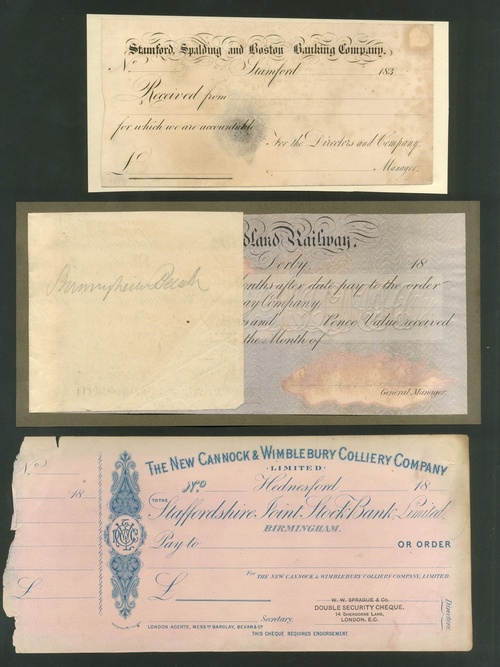 Stamford, Spalding and Boston Banking Company.
No Stamford 183
Received from
for which we are accountable
For the Directors and Company.
£ Manager.
dland Railway.
Derby, 18
onths after date pay to the order
ay Company
and Pence Value received
the Month of
General Manager.
Birmingham
No
18
£
THE NEW CANNOCK & WIMBLEBURY COLLIERY COMPANY
LIMITED
No Hednesford 18
TO THE
Staffordshire Joint Stock Bank Limited.
BIRMINGHAM.
Pay to OR ORDER
For THE NEW CANNOCK & WIMBLEBURY COLLIERY COMPANY, LIMITED.
£
Directors.
W. W. SPRAGUE & Co.
DOUBLE SECURITY CHEQUE.
14 SHERBORNE LANE,
LONDON. E.C.
Secretary.
LONDON AGENTS, MESSRS BARCLAY, BEVAN & Co
THIS CHEQUE REQUIRES ENDORSEMENT.